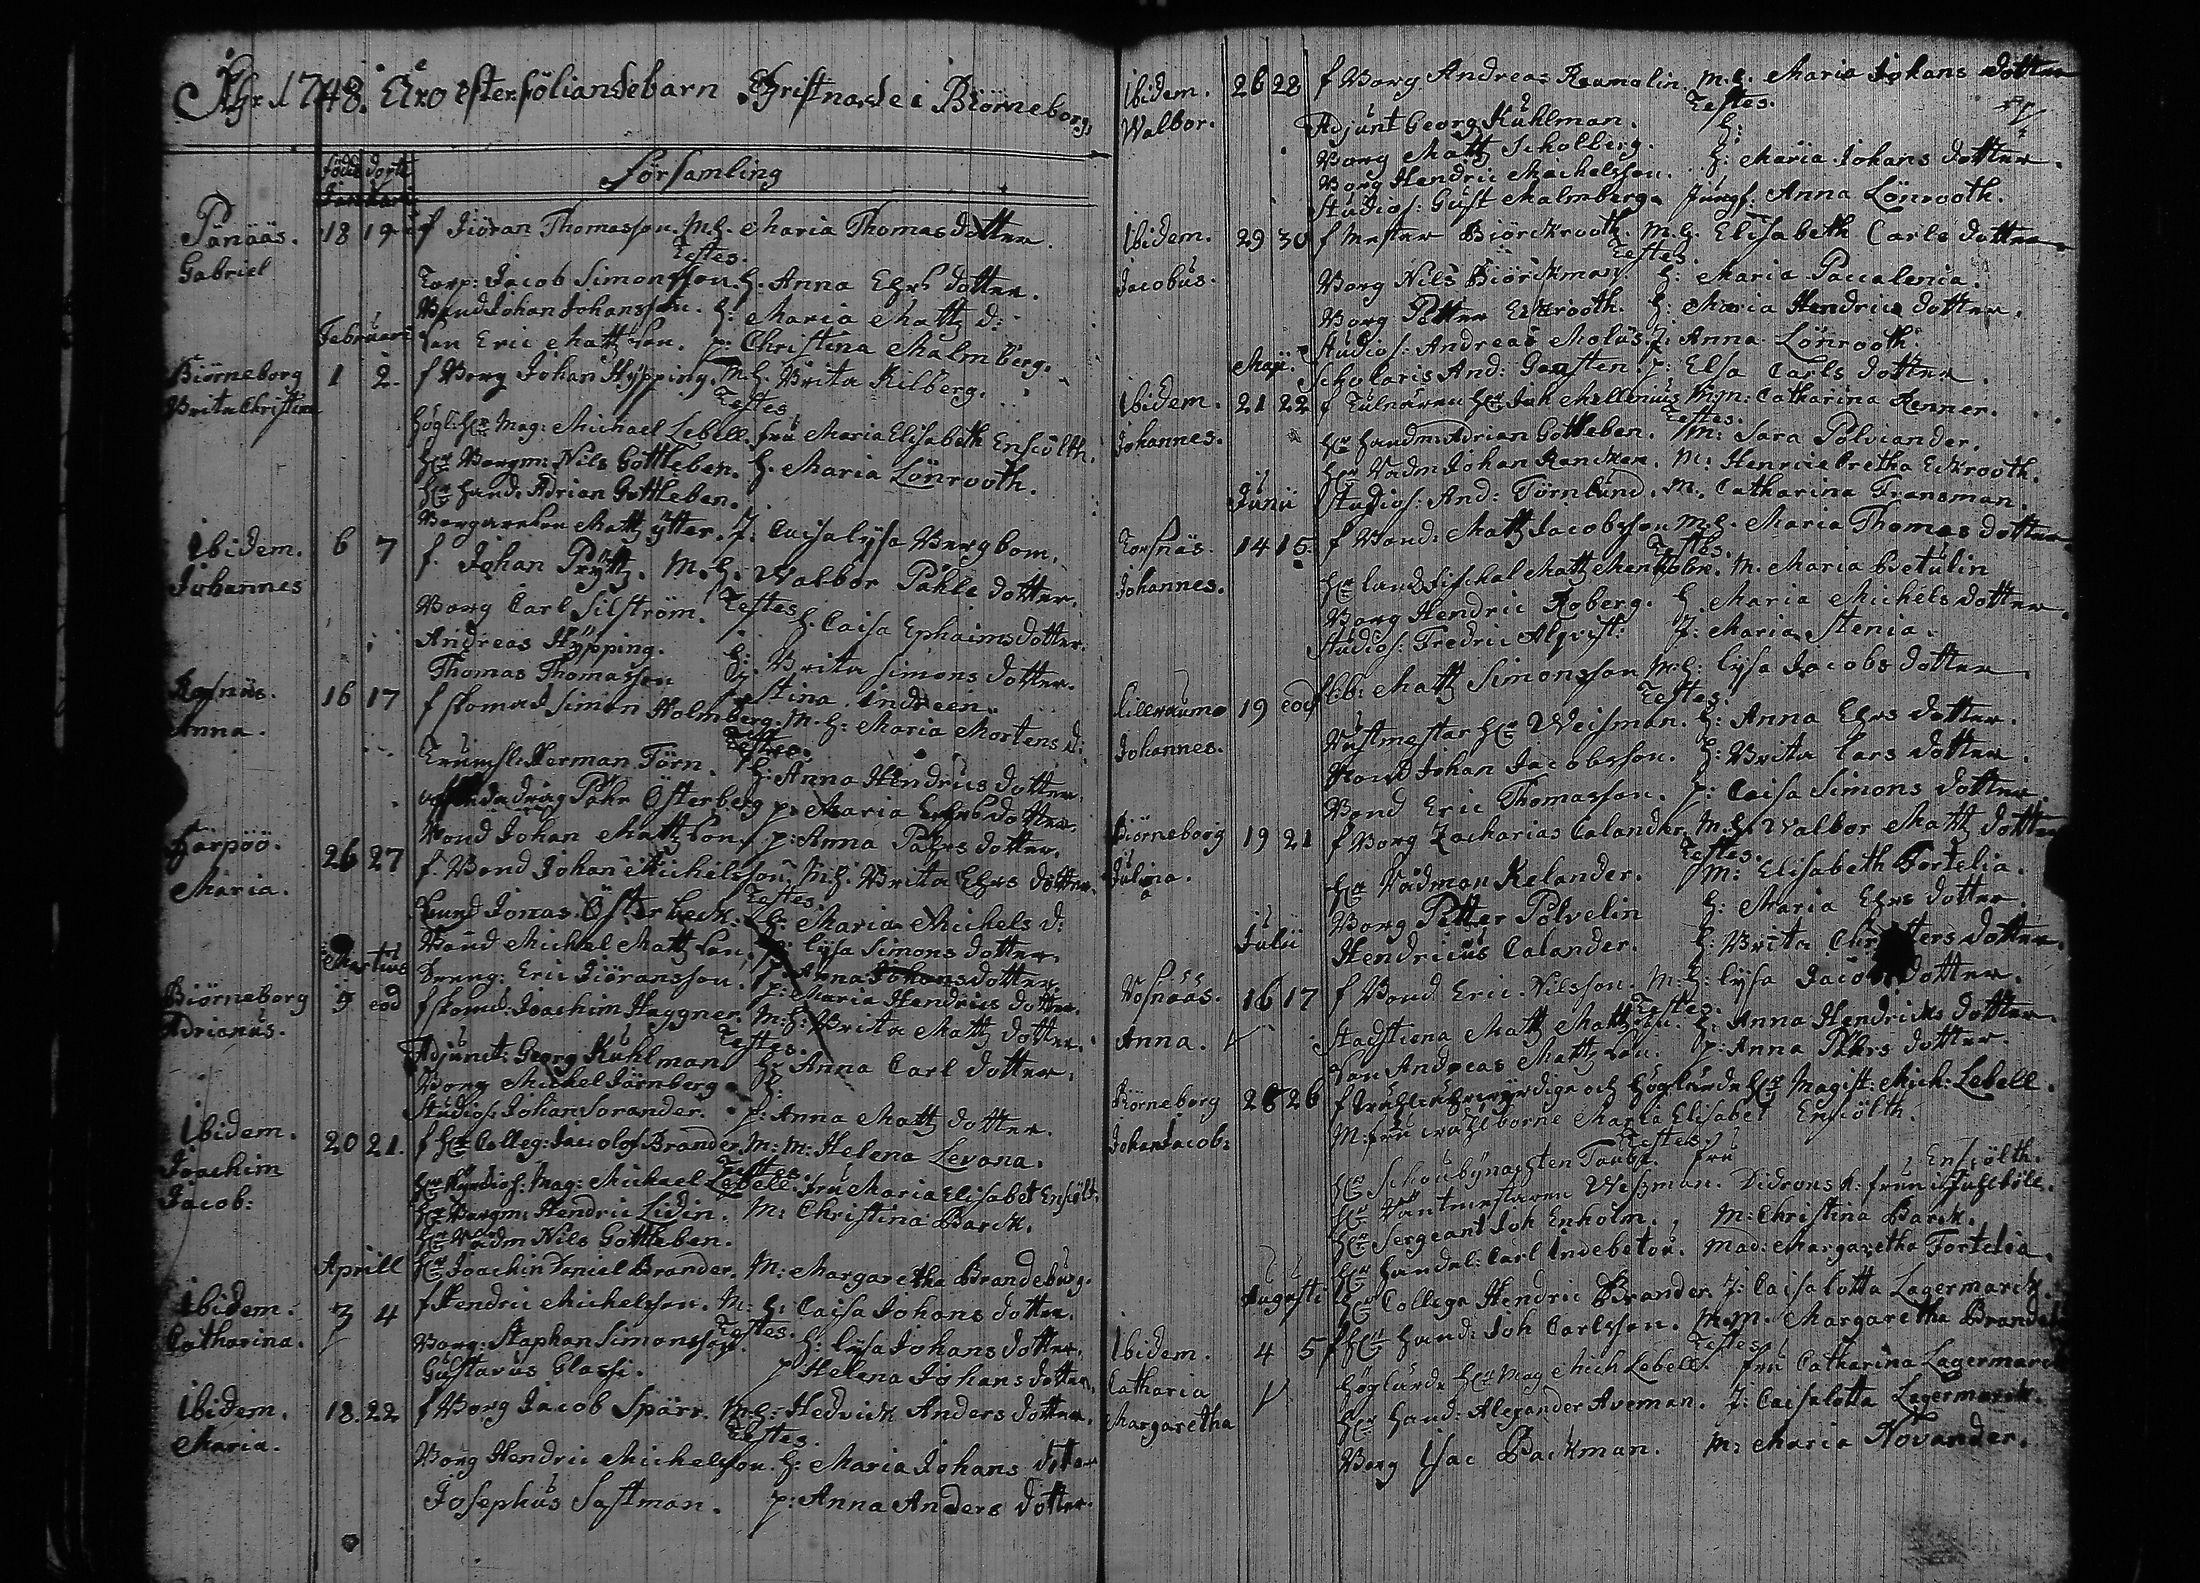 Åhr 1748. Äro efterföliande barn Christnade i Biörneborgs
Församling
födde döpte
Pänääs. 18 19 f Jiöran Thomasson. M.h. Maria Thomas dotter.
Gabriel Testes.
Torp: Jacob Simonsson. h. Anna Ehrs dotter.
Bond Johan Johansson. h: Maria Matts d:
Februari Son Eric Matts Son. p: Christina Malmberg.
Biörneborg 1 2. f Borg Johan Hypping. M.h. Brita Kilberg.
Brita Christina Testes.
Högl: Hr Mag: Michael Lebell. fru Maria Elisabeth Ensiölth.
Hr Borgm: Nils Gottleben. h. Maria Lönrooth.
Hr Hand. Adrian Gottleben.
Borgareson Matts ytter. J: Caisa lysa Bergbom.
Ibidem. 6 7 f. Johan Pryttz. M.h. Walbor Påhls dotter.
Johannes Testes
Borg Carl Silström. h. Caisa Ephaims dotter.
Andreas Hypping. h: Brita Simons dotter.
Thomas Thomasson Stina Indreen.
16 17 f skomad Simon Holmberg. M.h: Maria Mortens d:
Anna. Testes.
Trumsl: Herman Törn. h: Anna Hendrics dotter.
Pähr Österberg p: Maria dotter.
Bond Johan Matts Son. p: Anna Pährs dotter.
26 27 f. Bond Johan Michelsson. M.h. Brita Ehrs dotter.
Maria. Testes.
Jonas Österbeck. h: Maria Michels d:
Martius Bond Michel Matts Son. lysa Simons dotter.
Dreng: Eric Jiöransson. Anna Johans dotter.
p: Maria Hendrics dotter.
Biörneborg 9 eod f skomd: Joachim Haggner. M:h: Brita Matts dotter.
Adrianus. Testes.
Adjunct: Georg Kuhlman h: Anna Carl dotter.
Borg Michel Jörnberg h:
Studios: Johan Sorander. p: Anna Matts dotter.
Ibidem. 20 21. f Hr Colleg: Jac: olof Brander. M: M: Helena Levana.
Joachim Testes
Jacob: Mag: Michael Lebell. fru Maria Elisabet Ensiölt.
Hr Borgm: Hendric Lidin. M: Christina Barck.
Hr Rådm Nils Gottleben.
Aprill Hr Joachim Daniel Brander. M: Margaretha Brandeburg.
Ibidem. 3 4 f Hendric Michelsson. M: h: Caisa Johans dotter.
Catharina. Testes.
Borg: Staphan Simonsson. h: lysa Johans dotter.
Gustavus Glassi. p Helena Johans dotter.
Ibidem. 18. 22 f Borg Jacob Spärr. M.h: Hedvick Anders dotter.
Maria. Testes.
Borg Hendric Michelsson. h: Maria Johans dotter
Josephus Sastman. p: Anna Anders dotter.
Ibidem. 26 28 f Borg Andreas Raumolin. M.h. Maria Johans dotter
Walbor. Testes.
Adjunt Georg Kuhlman. h:
Borg Matts Scholberg. h: Maria Johans dotter.
Borg Hendric Michelsson.
Studios: Gust Malmberg. Jungf: Anna Lönrooth.
Ibidem. 29 30 f Mester Biörckrooth. M.h. Elisabeth Carls dotter.
Jacobus. Testes
Borg Nils Biörckman h: Maria Paccalenia.
Borg Petter Eckrooth. h: Maria Hendrics dotter.
Studios: Andreas Molus. J: Anna Lönrooth.
Maji. Scholaris And: Gausten. p: Elsa Carls dotter.
Ibidem. 21 22 f Tulnären Hr Joh Mellenius M:m: Catharina Renner.
Johannes. Testes.
Hr Handm: Adrian Gottleben. M: Sara Polviander.
Hr Rådm Johan Rancken. M: Henric Gretha Eckrooth.
Junii Studios: And: Törnlund. M. Catharina Fransman.
Torsnäs. 14 15. f Bond: Matts Jacobsson M.h. Maria Thomas dotter.
Johannes. Testes.
Hr landsfischal Matts M. Maria Betulin
Borg Hendric Roberg. h. Maria Michels dotter.
Studios: Fredric Alqvist. J: Maria Stenia.
19 eod Matts Simonsson M:h: lysa Jacobs dotter.
Johannes. Testes.
Hr Weisman. h: Anna Ehrs dotter.
Bond Johan Jacobsson. h: Brita Lars dotter.
Bond Eric Thomasson. p: Caisa Simons dotter.
Biörneborg 19 21 f Borg Zacharias Calander. M.h: Walbor Matts dotter
Julina. Testes.
Hr Rådman Kelander. M: Elisabeth Fortelia.
Borg Petter Polvelin h: Maria Ehrs dotter.
Julii Hendricus Calander. h: Brita dotter.
16 17 f Bond Eric Nilsson. M:h: lysa Jacobs dotter.
Anna. Testes.
Stadstiena Matts h: Anna Hendricks dotter
Son Andreas Matts Son. p: Anna Pährs dotter.
Biörneborg 28 26 f och Höglärde Hr Magist: Mich: Lebell.
Johan Jacob: M: fru Maria Elisabet Ensiölth.
Testes
Hr Taube. fru Ensiölth.
Hr Wessman.
Hr Sergeant Joh Enholm. M: Christina Barck.
Hr Handel: Carl Indebetou. Mad: Margaretha Fortelia.
Augusti Hr Collega Hendric Brander. J: Caisa lotta Lagermarck.
Ibidem. 4 5 f Hr Hand: Joh Carlsson. M:M. Margaretha
Catharia Testes
Margaretha Höglärde Hr Mag Mich Lebell. fru Catharina Lagermarck
Hr Hand: Alexander Aveman. J: Caisa lotta Lagermarck.
Borg Isac Backman. M: Maria Novander.